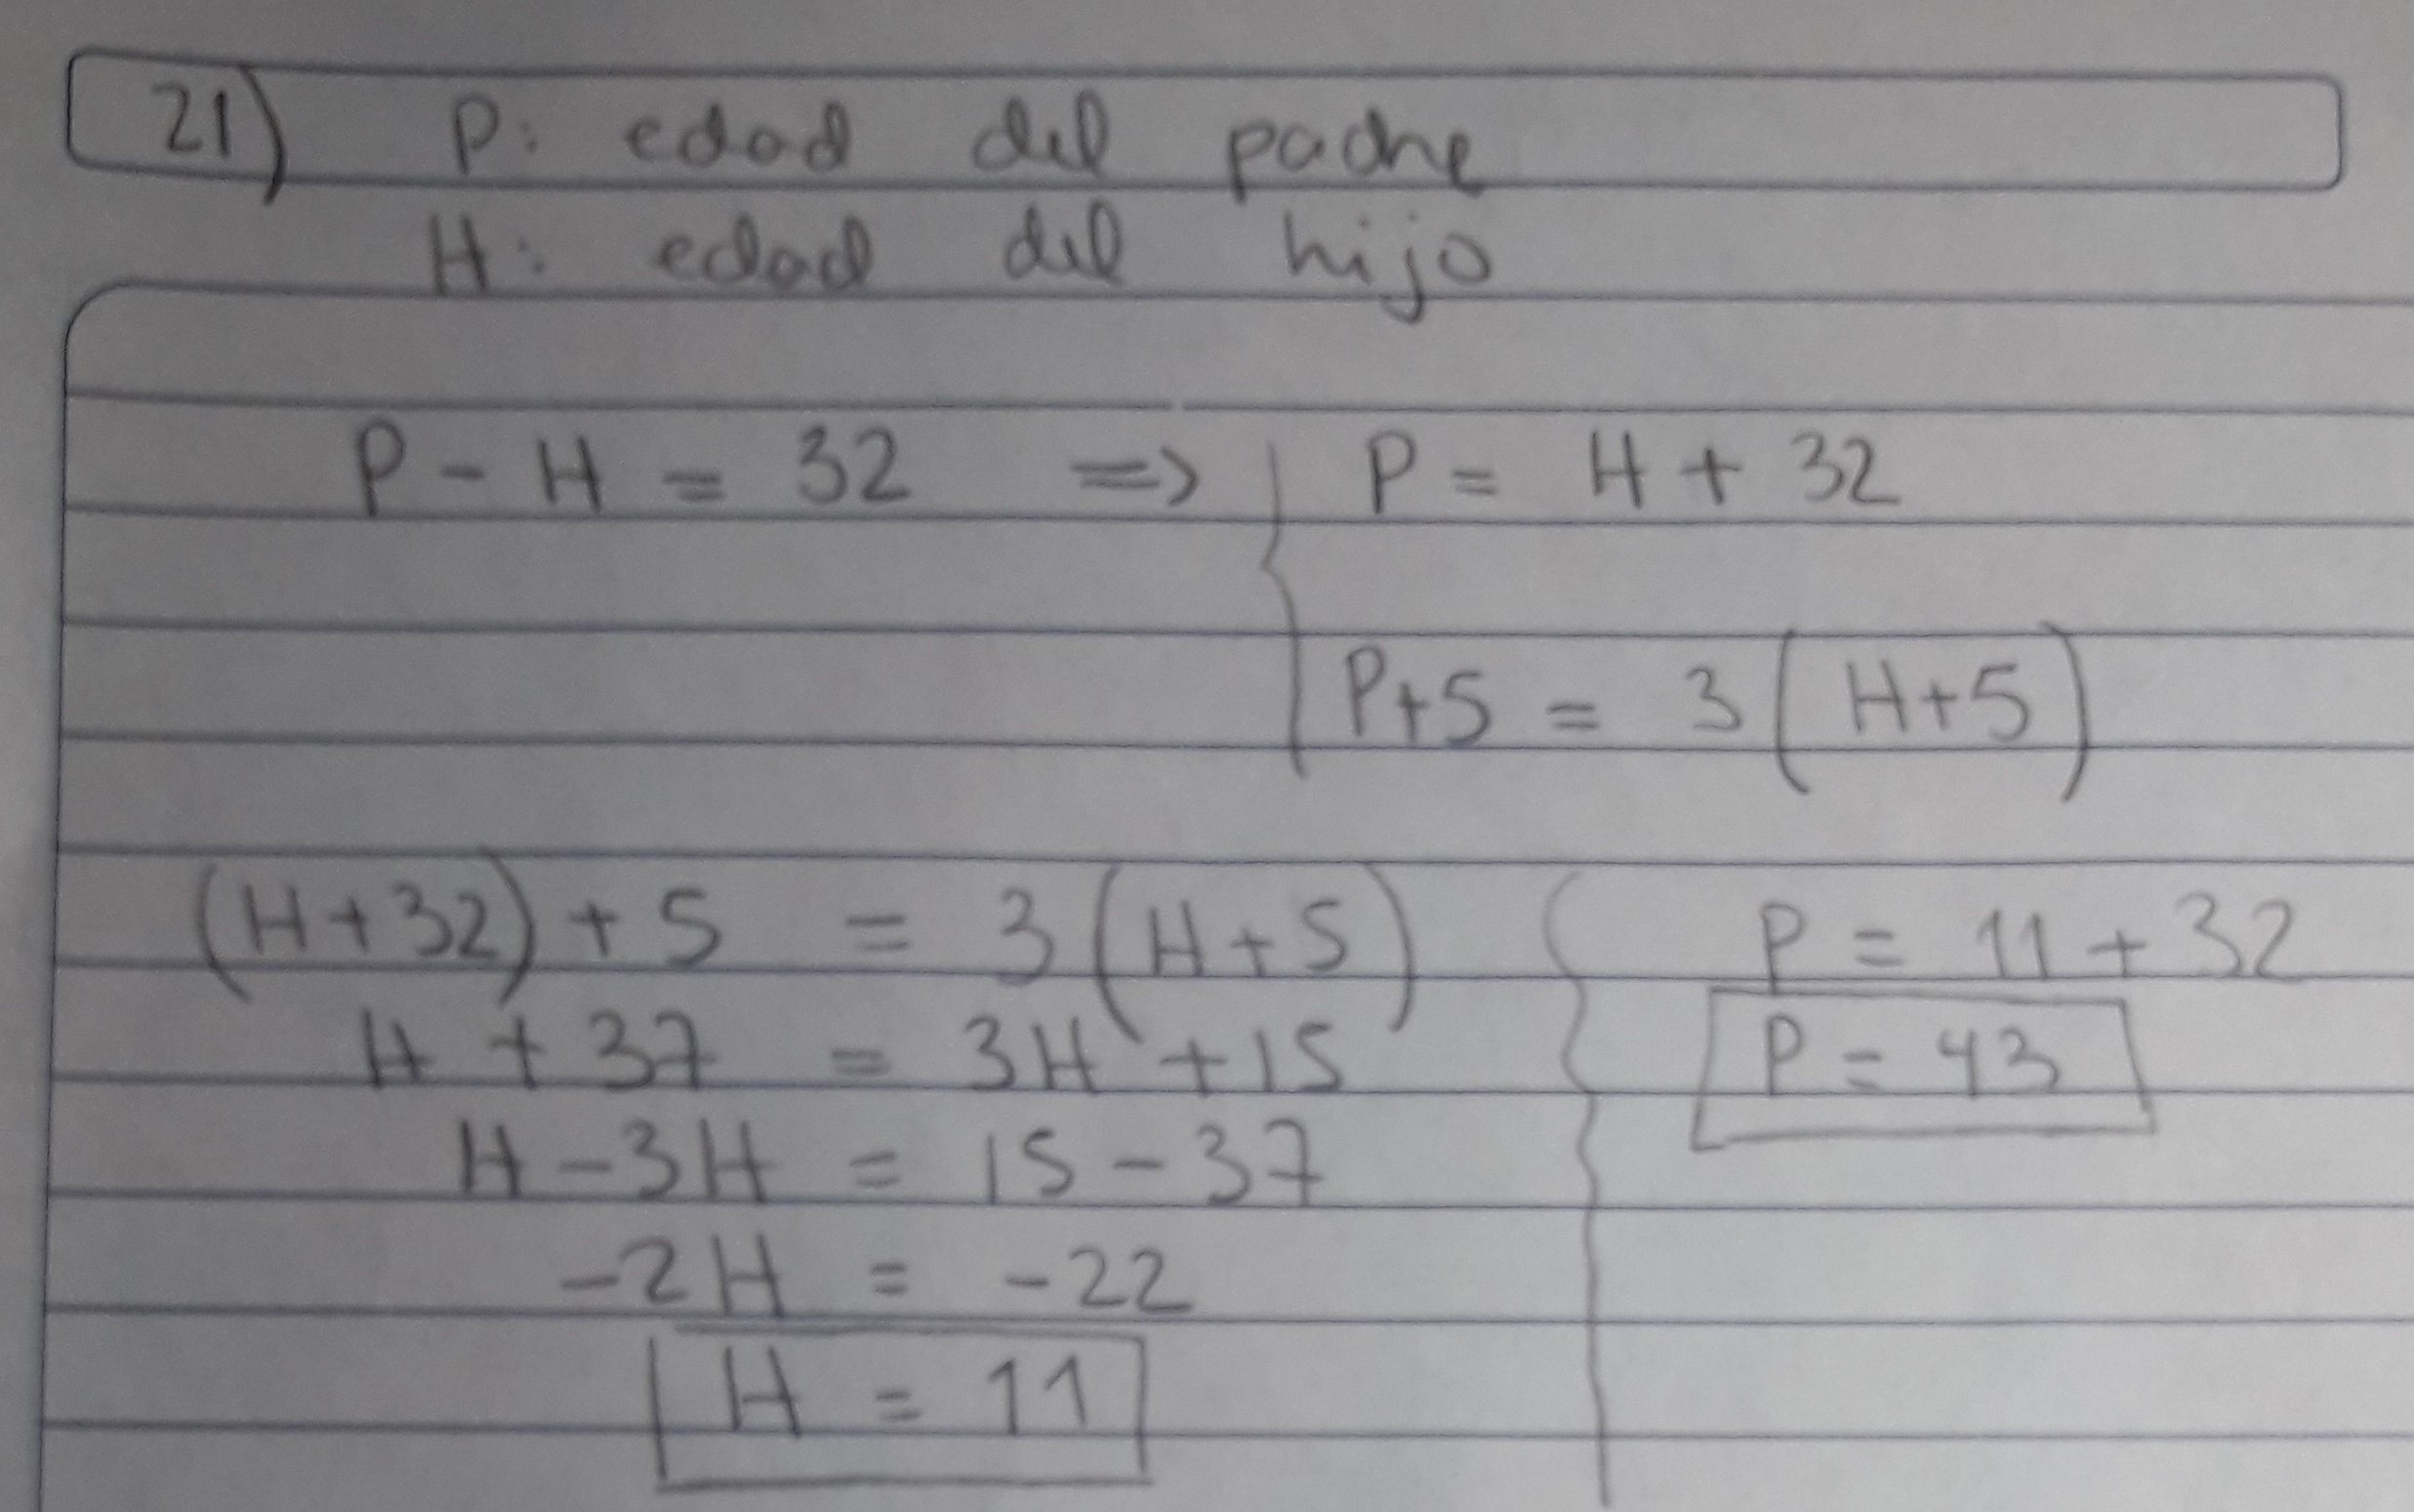 21) P: edad del padre
H: edad del hijo
P - H = 32 => P = H + 32
P+5 = 3(H+5)
(H+32)+5 = 3(H+5)
H + 37 = 3H + 15
H - 3H = 15 - 37
-2H = -22
H = 11
P = 11 + 32
P = 43